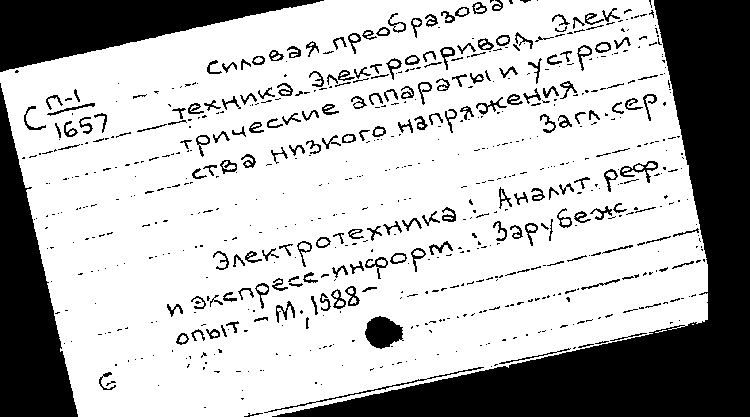 Силовая преобразоват
С П-1
1657
техника. Электропривод. Элек-
трические аппараты и устрой-
ства низкого напряжения.
Загл. сер.
Электротехника : Аналит. реф.
и экспресс-информ. : Зарубеж.
опыт. - М., 1988-
6